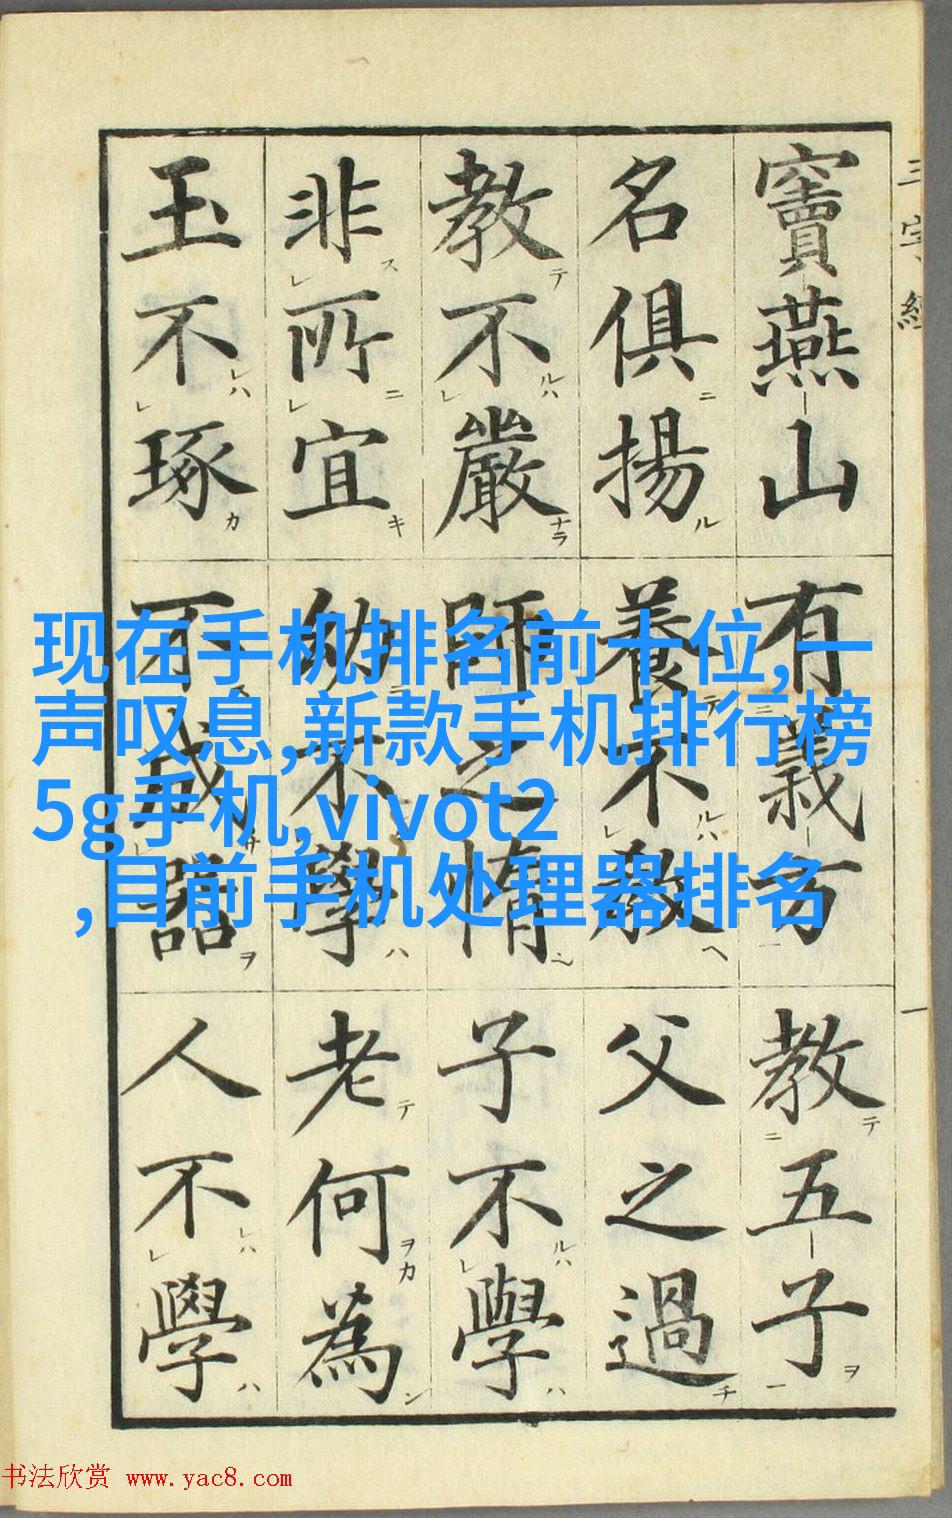 三字經 一
竇燕山有義方教五子
名俱揚養不教父之過
教不嚴師之惰子不學
非所宜幼不學老何為
玉不琢不成器人不學
现在手机排名前十位,一
声叹息,新款手机排行榜
5g手机,vivot2
,目前手机处理器排名
书法欣赏 www.yac8.com